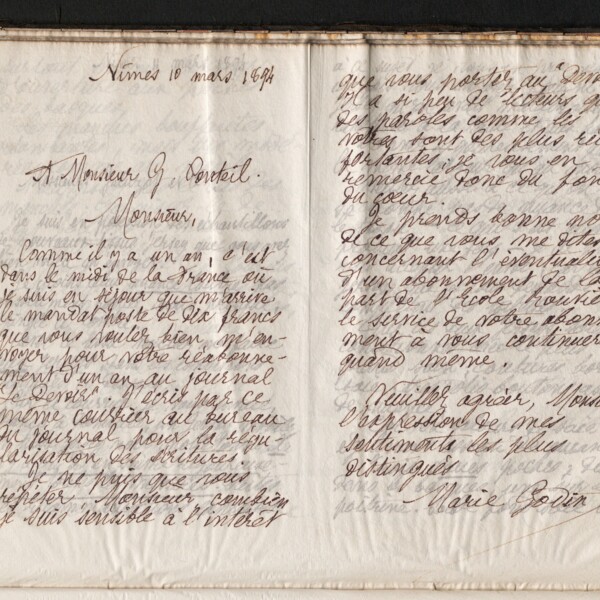 Nîmes 10 mars 1894
A Monsieur G. Ponteil.
Monsieur,
Comme il y a un an, c'est
dans le midi de la France où
je suis en séjour que m'arrive
le mandat poste de dix francs
que vous voulez bien m'en-
voyer pour votre réabonne-
ment d'un an au journal
"Le Devoir". J'écris par ce
même courrier au bureau
du journal pour la régu-
larisation des écritures.
Je ne puis que vous
répéter Monsieur combien
je suis sensible à l'intérêt
que vous portez au "Devoir
Il y a si peu de lecteurs q
des paroles comme les
vôtres sont des plus ré
fortantes; je vous en
remercie donc du fon
du cœur.
Je prends bonne no
de ce que vous me dites
concernant l'éventuali
d'un abonnement de la
part de l'Ecole
le service de votre abon
ment à vous continuer
quand même.
Veuillez agréer, Monsi
l'expression de mes
sentiments les plus
distingués
Marie Godin